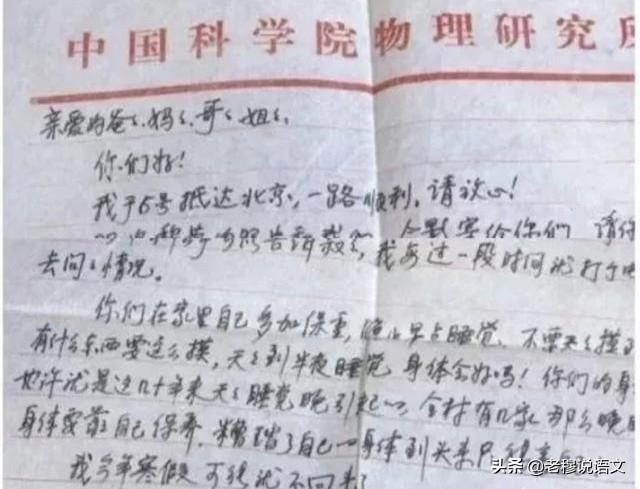 中国科学院物理研究所
亲爱的爸々、妈々、哥々、姐々、
你们好!
我于5号抵达北京,一路顺利,请放心!
告诉 寄给你们 请 我每过一段时间就打
去问々情况。
你们在家里自己多加保重,晚上早点睡觉。不要天々摸
有什么东西要这么摸,天々到半夜睡觉 身体会好吗!你们的身
也许就是这几十年来天々睡觉晚引起 全村有几家那么晚
身体要靠自己保养,糟蹋了自己 身体到头来
我今年寒假 可能就不回来了
头条 @老穆说语文